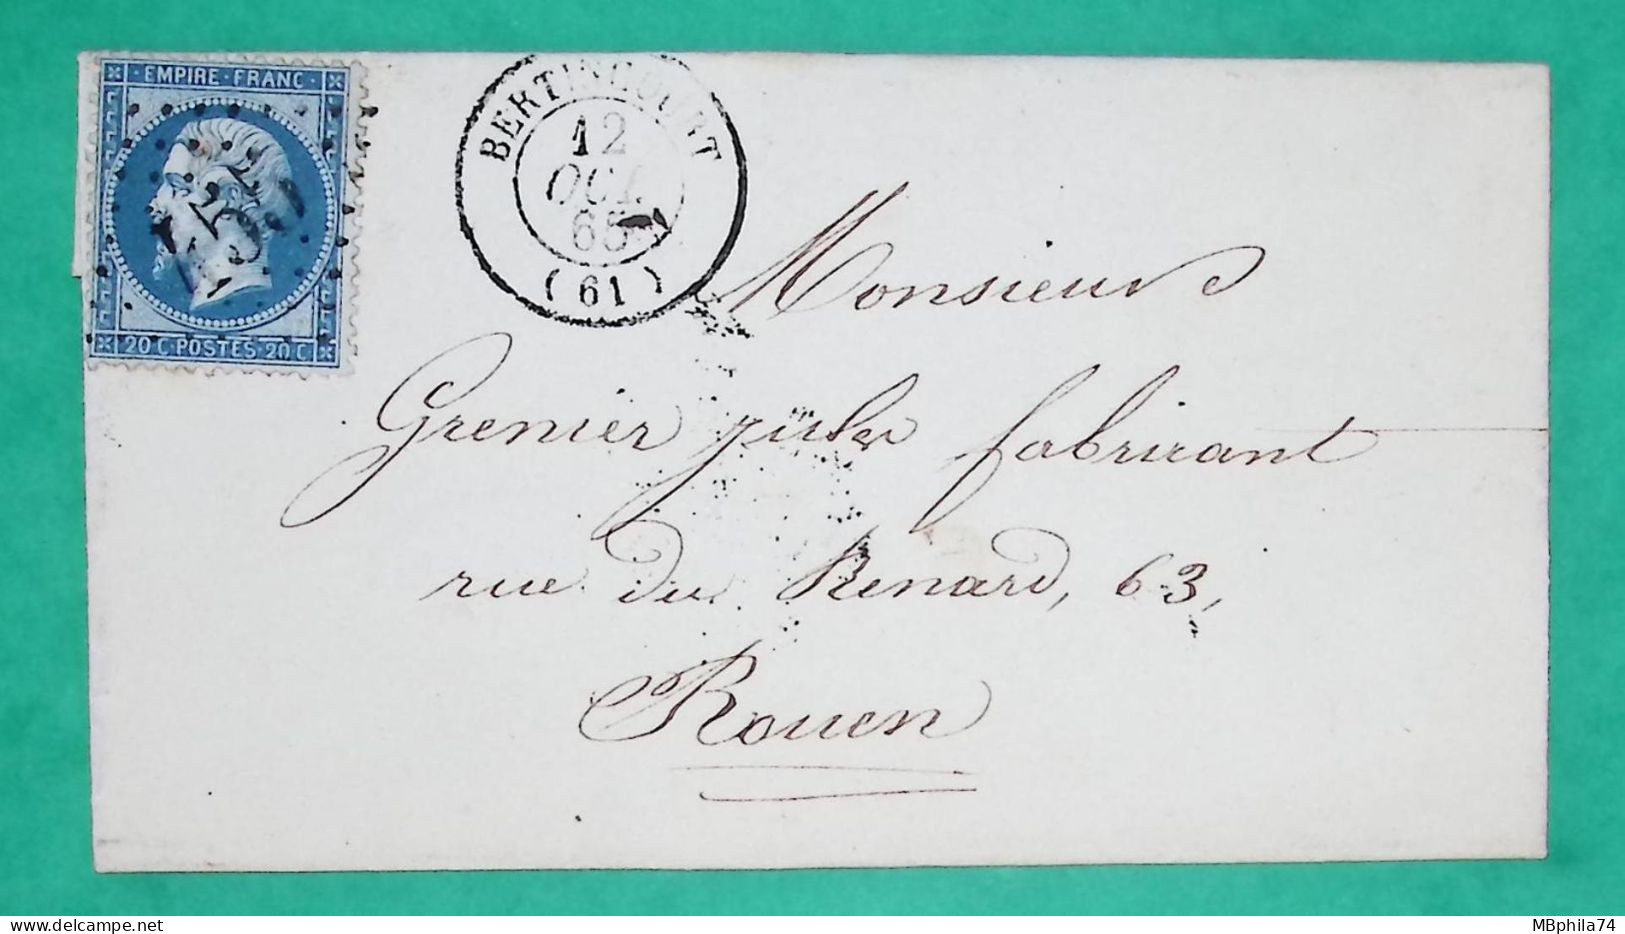 EMPIRE·FRANC·
20 C·POSTES·20 C
BERTINCOURT
12
OCT.
65
(61)
Monsieur
Grenier jules fabricant
rue du Renard, 63,
Rouen
MBphila74